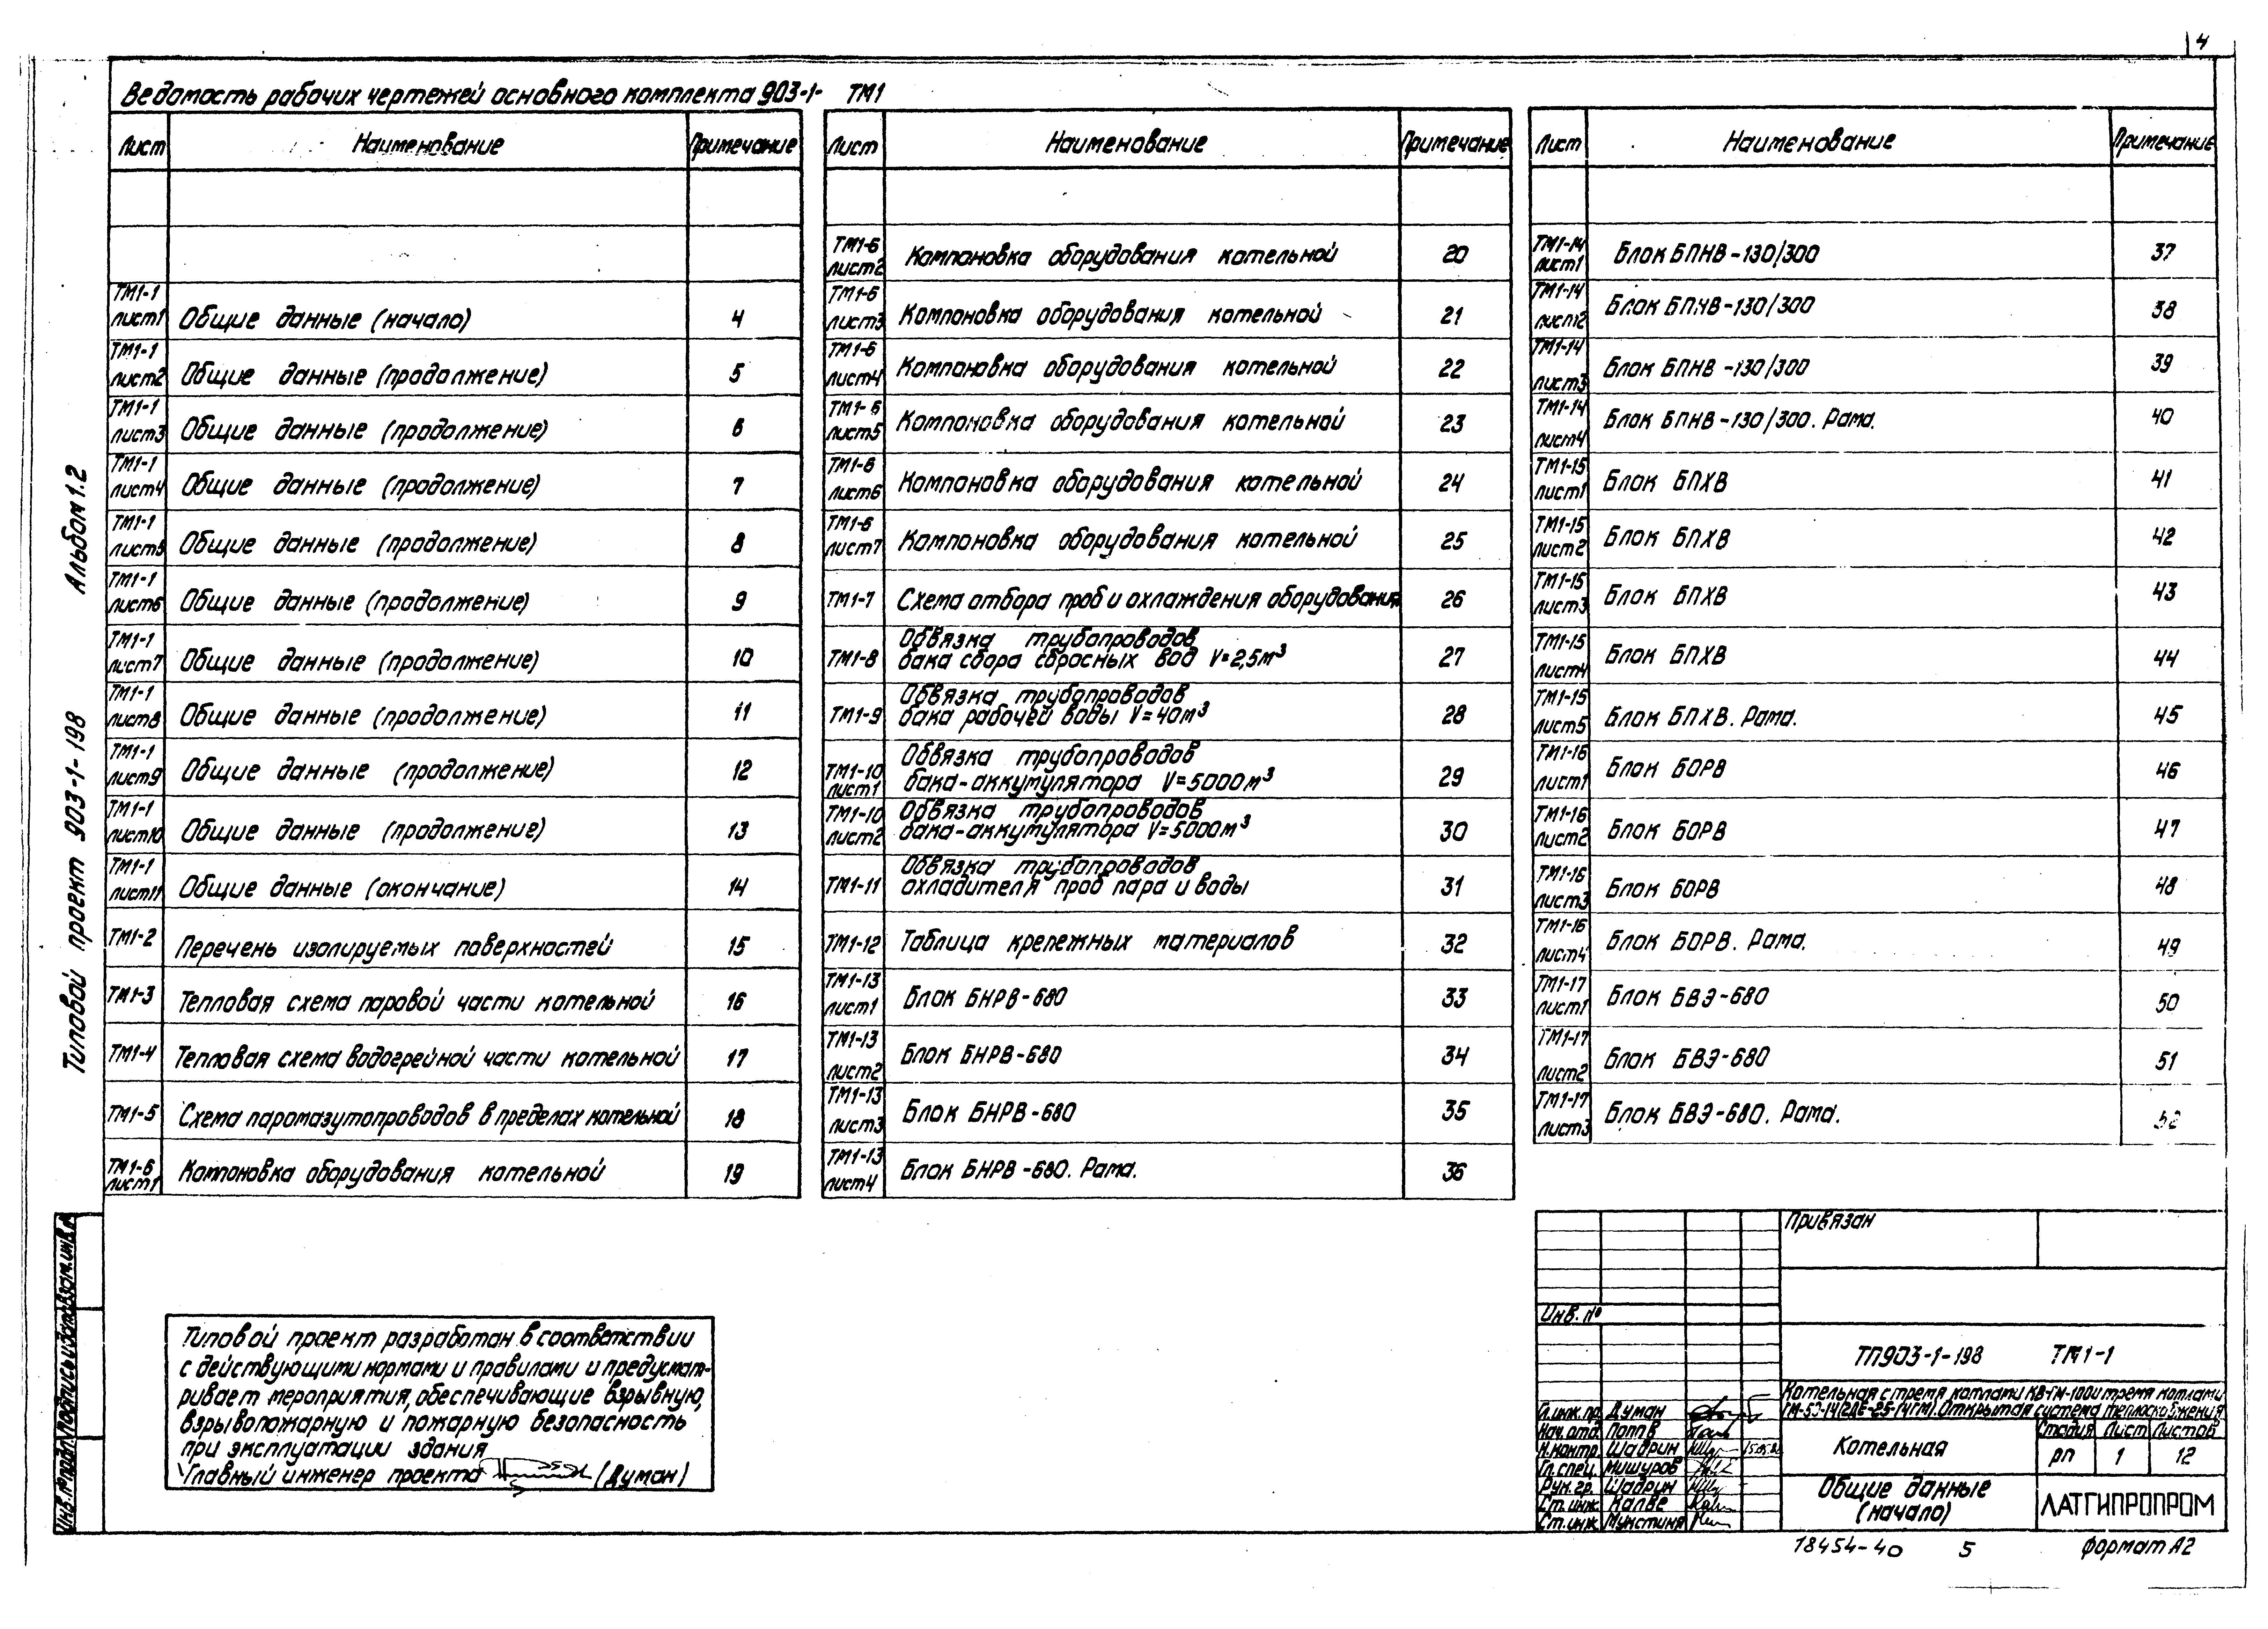 4
Ведомость рабочих чертежей основного комплекта 903-1- ТМ1
Лист Наименование Примечание
ТМ1-1 лист1 Общие данные (начало) 4
ТМ1-1 лист2 Общие данные (продолжение) 5
ТМ1-1 лист3 Общие данные (продолжение) 6
ТМ1-1 лист4 Общие данные (продолжение) 7
ТМ1-1 лист5 Общие данные (продолжение) 8
ТМ1-1 лист6 Общие данные (продолжение) 9
ТМ1-1 лист7 Общие данные (продолжение) 10
ТМ1-1 лист8 Общие данные (продолжение) 11
ТМ1-1 лист9 Общие данные (продолжение) 12
ТМ1-1 лист10 Общие данные (продолжение) 13
ТМ1-1 лист11 Общие данные (окончание) 14
ТМ1-2 Перечень изолируемых поверхностей 15
ТМ1-3 Тепловая схема паровой части котельной 16
ТМ1-4 Тепловая схема водогрейной части котельной 17
ТМ1-5 Схема паромазутопроводов в пределах котельной 18
ТМ1-6 лист1 Компоновка оборудования котельной 19
Лист Наименование Примечание
ТМ1-6 лист2 Компоновка оборудования котельной 20
ТМ1-6 лист3 Компоновка оборудования котельной 21
ТМ1-6 лист4 Компоновка оборудования котельной 22
ТМ1-6 лист5 Компоновка оборудования котельной 23
ТМ1-6 лист6 Компоновка оборудования котельной 24
ТМ1-6 лист7 Компоновка оборудования котельной 25
ТМ1-7 Схема отбора проб и охлаждения оборудования 26
Обвязка трубопроводов
ТМ1-8 бака сбора сбросных вод V=2,5м³ 27
Обвязка трубопроводов
ТМ1-9 бака рабочей воды V=40м³ 28
Обвязка трубопроводов
ТМ1-10 лист1 бака-аккумулятора V=5000м³ 29
Обвязка трубопроводов
ТМ1-10 лист2 бака-аккумулятора V=5000м³ 30
Обвязка трубопроводов
ТМ1-11 охладителя проб пара и воды 31
ТМ1-12 Таблица крепежных материалов 32
ТМ1-13 лист1 Блок БНРВ-680 33
ТМ1-13 лист2 Блок БНРВ-680 34
ТМ1-13 лист3 Блок БНРВ-680 35
ТМ1-13 лист4 Блок БНРВ-680. Рама. 36
Лист Наименование Примечание
ТМ1-14 лист1 Блок БПНВ-130/300 37
ТМ1-14 лист2 Блок БПНВ-130/300 38
ТМ1-14 лист3 Блок БПНВ-130/300 39
ТМ1-14 лист4 Блок БПНВ-130/300. Рама. 40
ТМ1-15 лист1 Блок БПХВ 41
ТМ1-15 лист2 Блок БПХВ 42
ТМ1-15 лист3 Блок БПХВ 43
ТМ1-15 лист4 Блок БПХВ 44
ТМ1-15 лист5 Блок БПХВ. Рама. 45
ТМ1-16 лист1 Блок БОРВ 46
ТМ1-16 лист2 Блок БОРВ 47
ТМ1-16 лист3 Блок БОРВ 48
ТМ1-16 лист4 Блок БОРВ. Рама. 49
ТМ1-17 лист1 Блок БВЭ-680 50
ТМ1-17 лист2 Блок БВЭ-680 51
ТМ1-17 лист3 Блок БВЭ-680. Рама. 52
Типовой проект 903-1-198 Альбом 1.2
Инв.№ подл. Подпись и дата Взам.инв.№
Типовой проект разработан в соответствии
с действующими нормами и правилами и предусмат-
ривает мероприятия, обеспечивающие взрывную,
взрывопожарную и пожарную безопасность
при эксплуатации здания
Главный инженер проекта (Думан)
Привязан
Инв. №
ТП903-1-198 ТМ1-1
Котельная с тремя котлами КВ-ГМ-100 и тремя котлами
ГМ-50-14(2ДЕ-25-14ГМ). Открытая система теплоснабжения
Гл.инж.пр. Думан
Нач.отд. Попов
Н.контр. Шадрин
Гл.спец. Мишуров
Рук.гр. Шадрин
Ст.инж. Калве
Ст.инж. Мукстиня
Котельная
Стадия Лист Листов
РП 1 12
Общие данные
(начало)
ЛАТГИПРОПРОМ
18454-40 5 формат А2